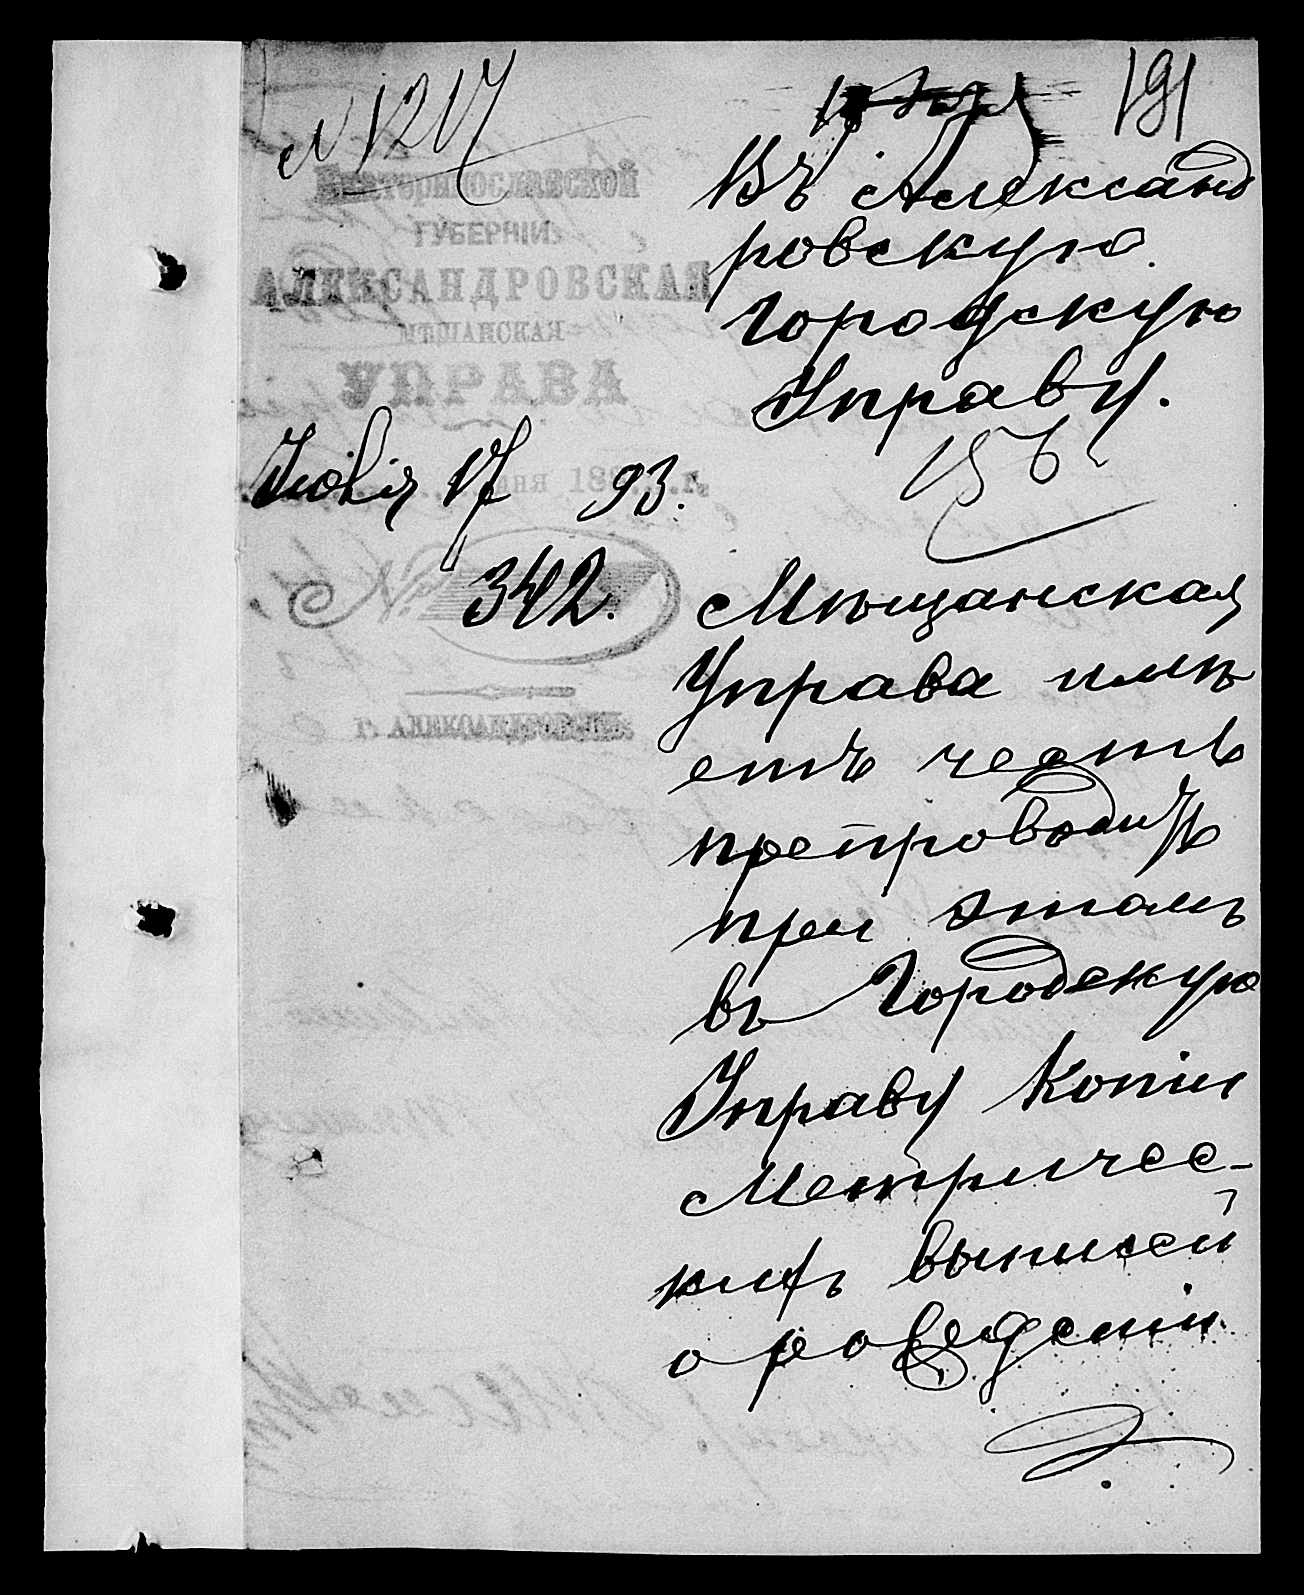 № 1217
191
Екатеринославской
ГУБЕРНІИ
АЛЕКСАНДРОВСКАЯ
МѢЩАНСКАЯ
УПРАВА
Іюля 17 дня 1893 г.
№ 342.
г. АЛЕКСАНДРОВСКЪ.
Въ Александ
ровскую
Городскую
Управу.
Мѣщанская
Управа имѣ
етъ честь
препроводить
при этомъ
въ Городскую
Управу Копіи
Метричес-
кихъ выписей
о рожденіи